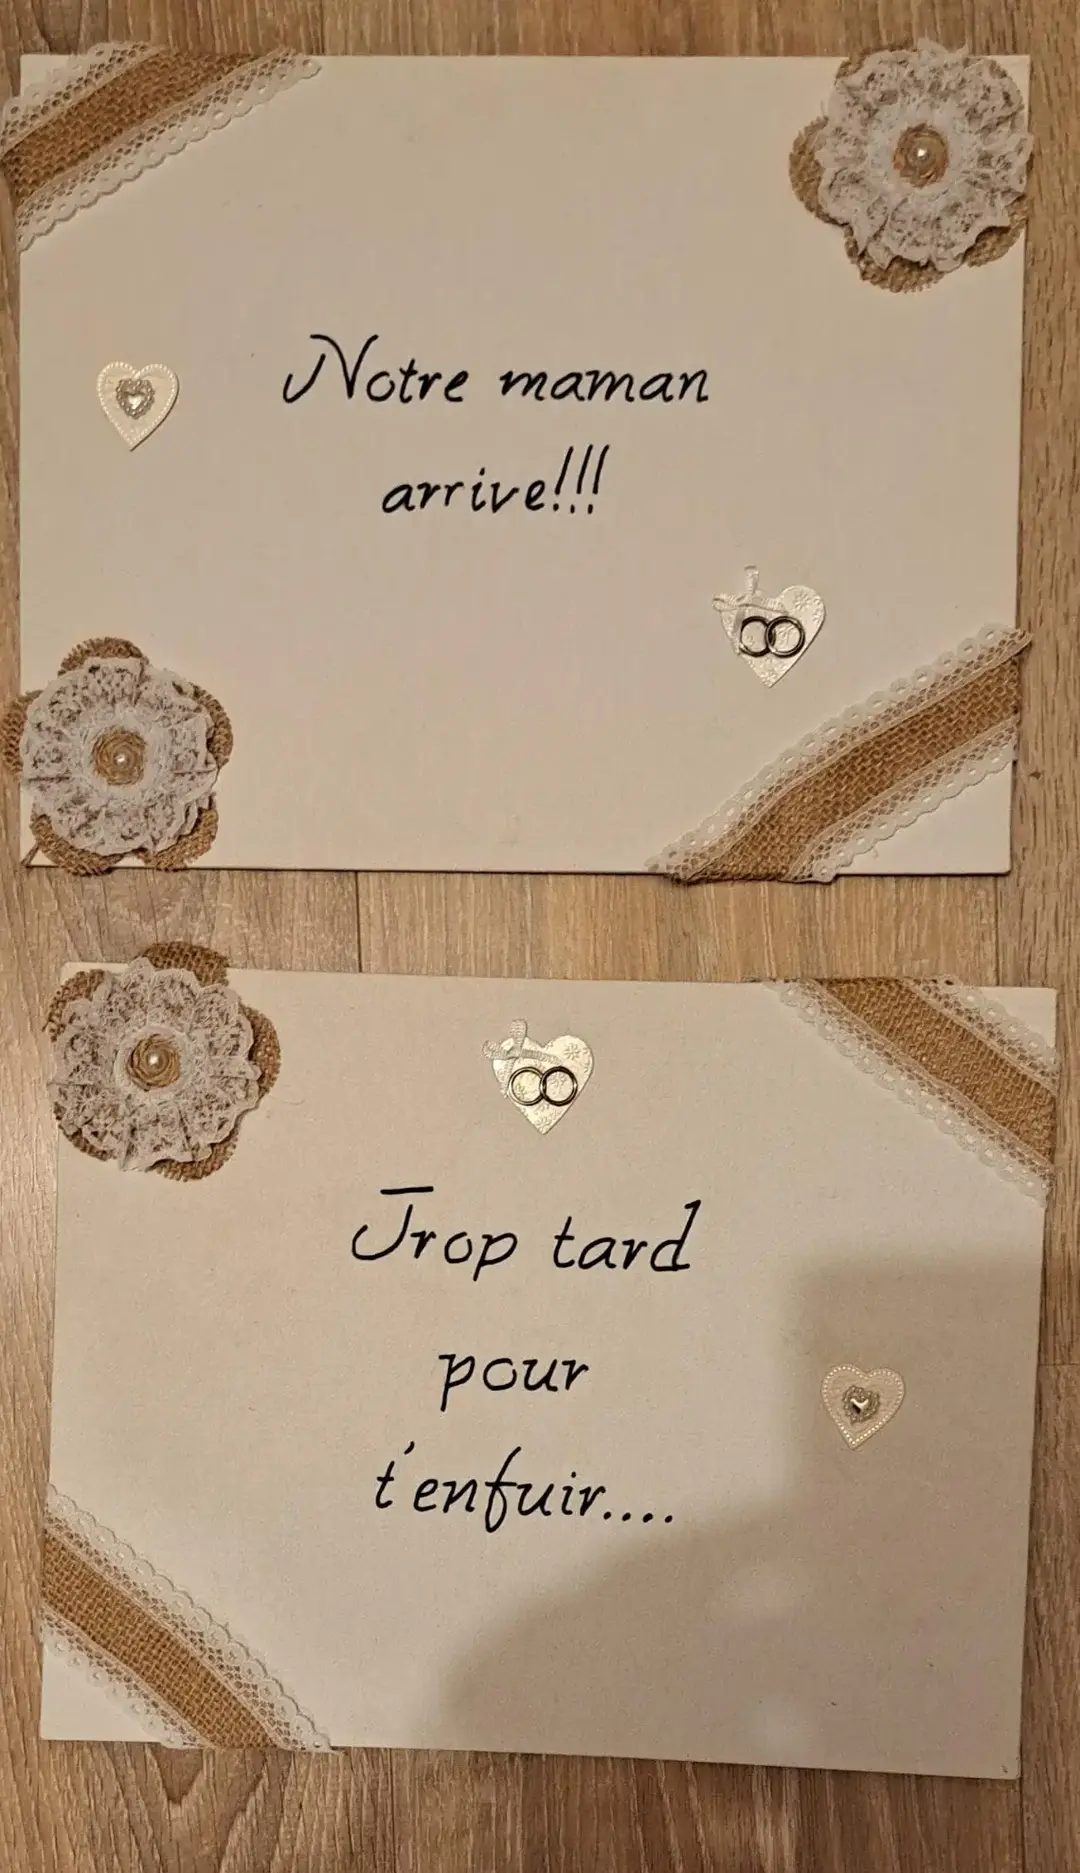 Notre maman
arrive!!!
Trop tard
pour
t'enfuir....